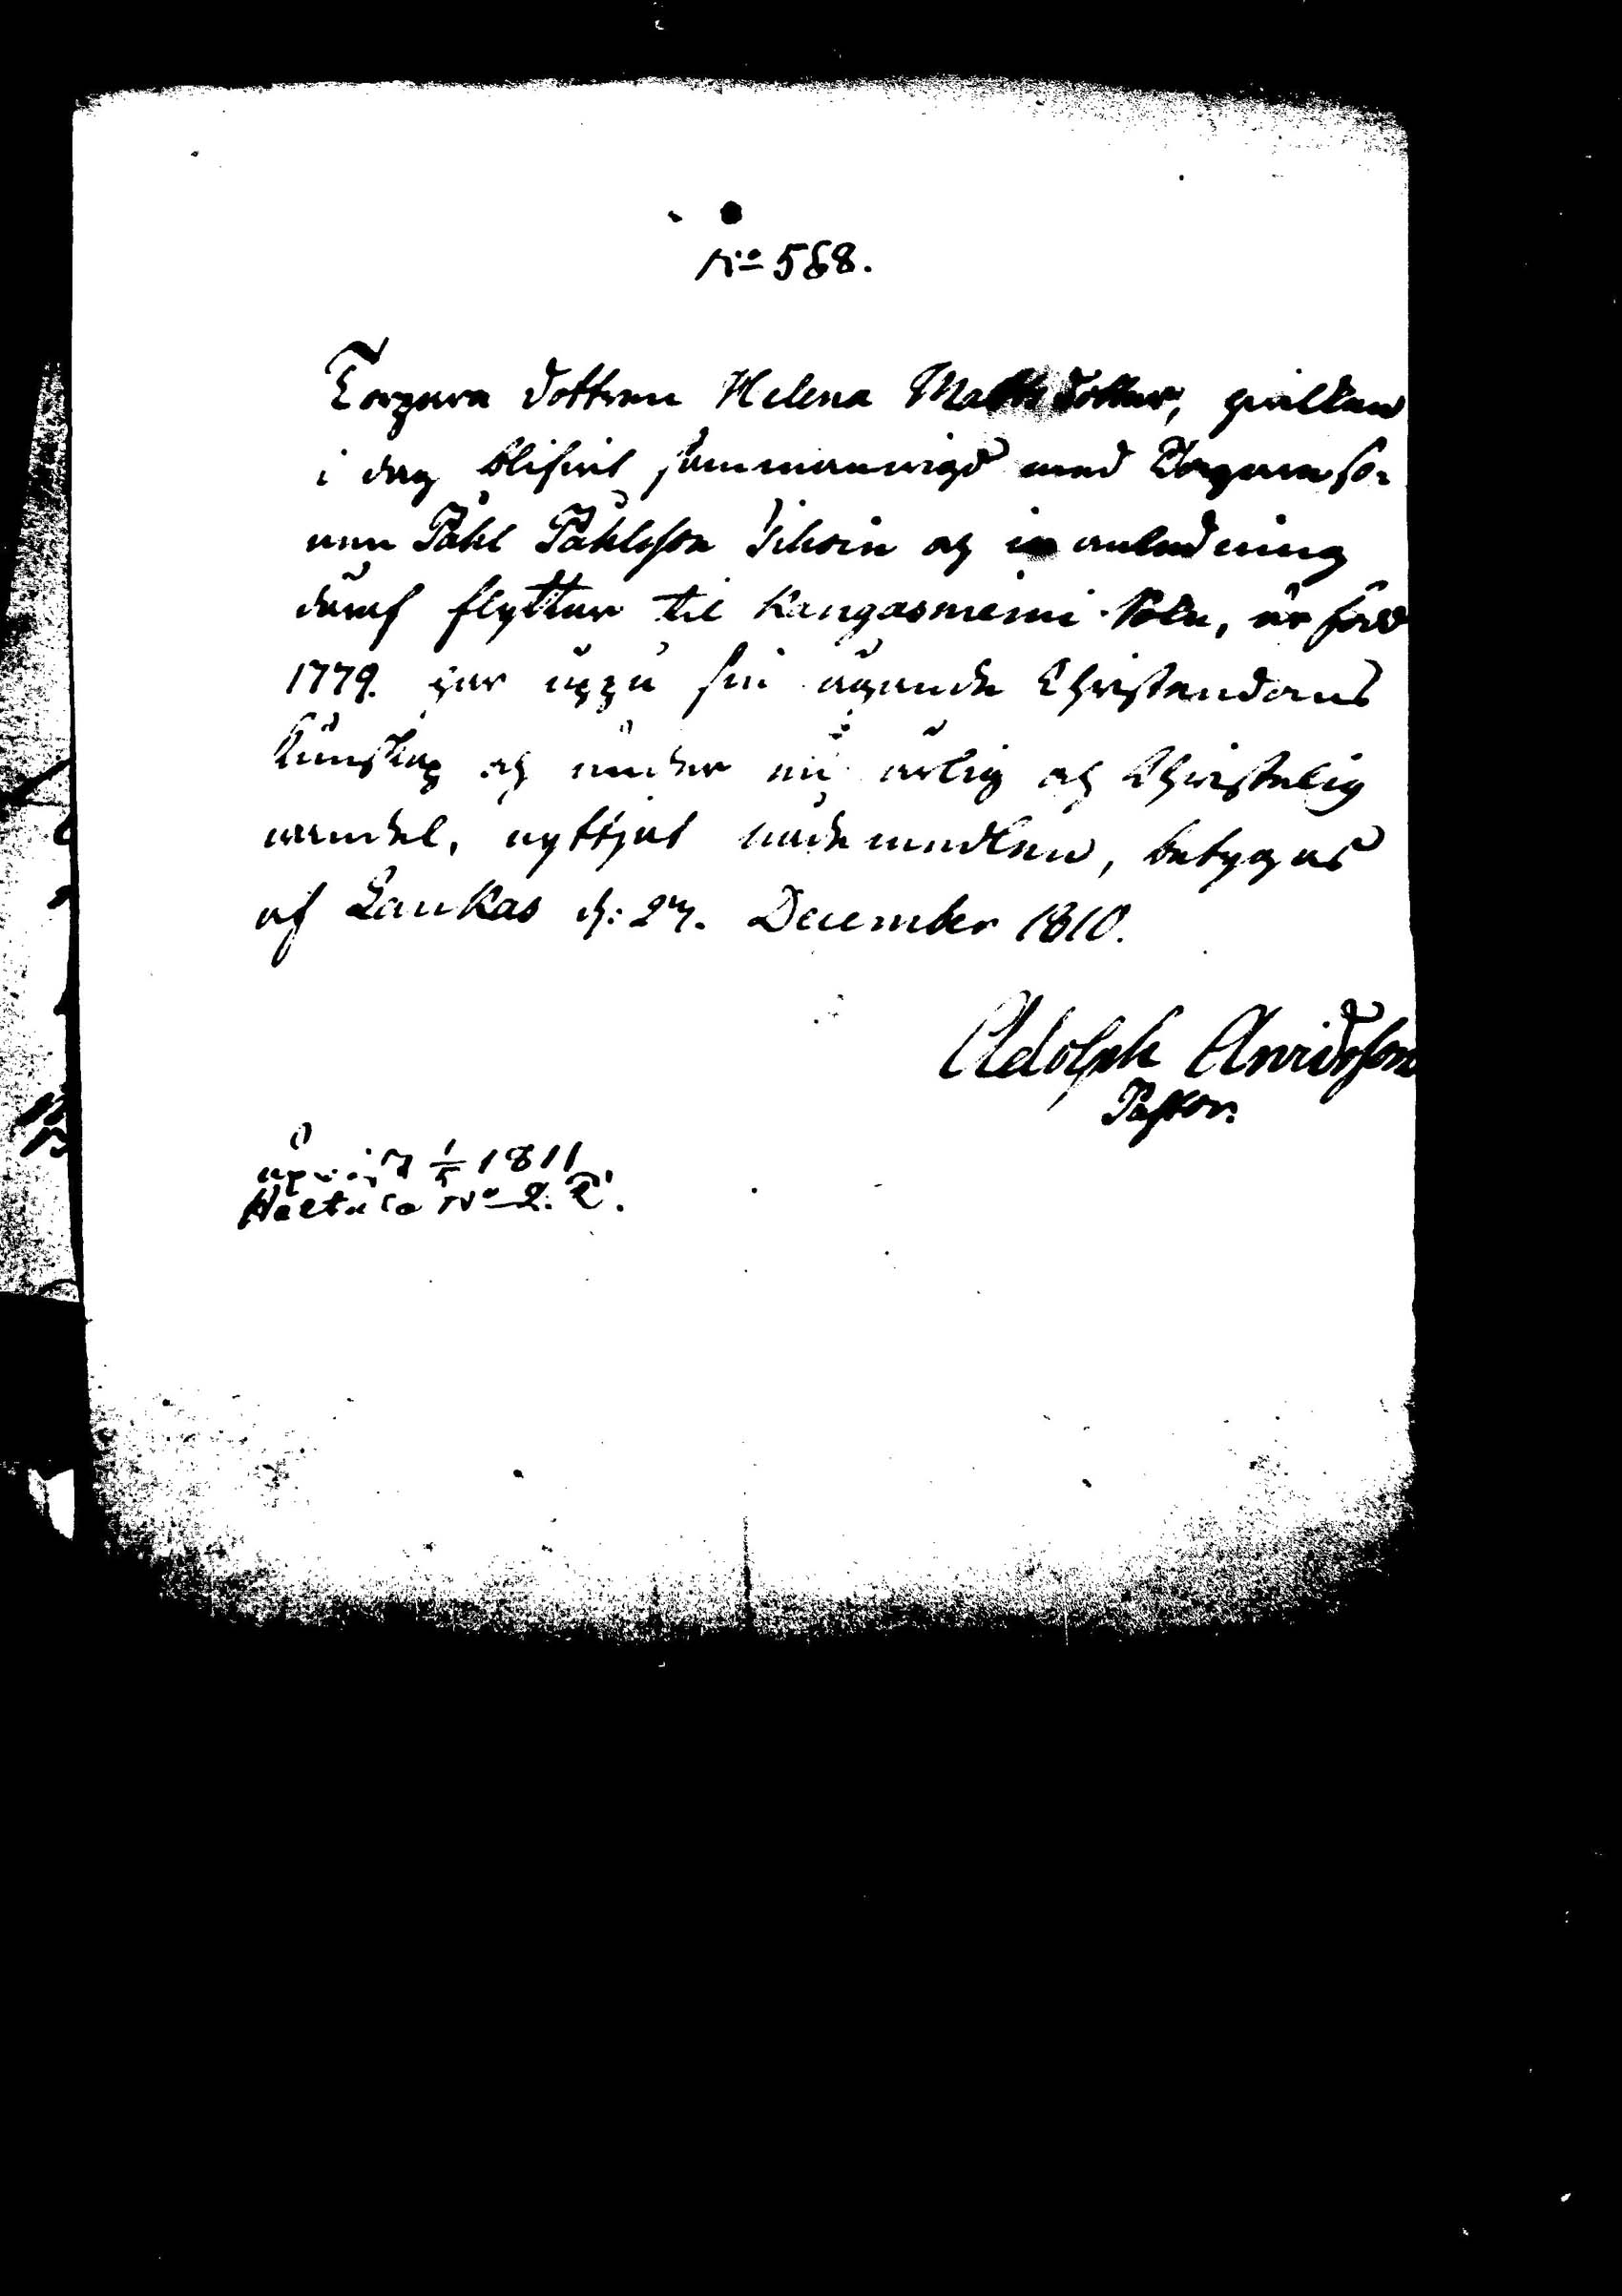 No 568.
Torpare dottren Helena Mattsdotter, hvilken
i dag blifvit sammanvigd med Torpare so-
nen Påhl Påhlsson Sikoin och i anledning
däraf flyttar til Kangasniemi Sokn, är född
1779. har uppå sin ägande Christendoms
kunskap och under en ärlig och Christelig
vandel, nyttjat nådemedlen, betygas
af Laukas d: 27. December 1810.
Adolph Arvidsson
Pastor.
1811
No 2.